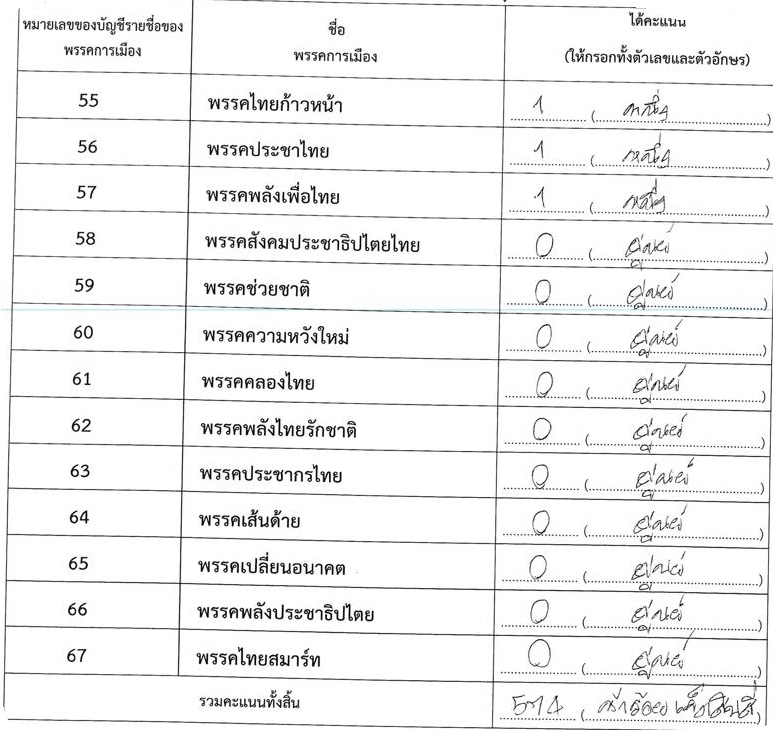 หมายเลขของบัญชีรายชื่อของพรรคการเมือง ชื่อพรรคการเมือง ได้คะแนน (ให้กรอกทั้งตัวเลขและตัวอักษร)
55 พรรคไทยก้าวหน้า 1 (หนึ่ง)
56 พรรคประชาไทย 1 (หนึ่ง)
57 พรรคพลังเพื่อไทย 1 (หนึ่ง)
58 พรรคสังคมประชาธิปไตยไทย 0 (ศูนย์)
59 พรรคช่วยชาติ 0 (ศูนย์)
60 พรรคความหวังใหม่ 0 (ศูนย์)
61 พรรคคลองไทย 0 (ศูนย์)
62 พรรคพลังไทยรักชาติ 0 (ศูนย์)
63 พรรคประชากรไทย 0 (ศูนย์)
64 พรรคเส้นด้าย 0 (ศูนย์)
65 พรรคเปลี่ยนอนาคต 0 (ศูนย์)
66 พรรคพลังประชาธิปไตย 0 (ศูนย์)
67 พรรคไทยสมาร์ท 0 (ศูนย์)
รวมคะแนนทั้งสิ้น 574 (ห้าร้อยเจ็ดสิบสี่)